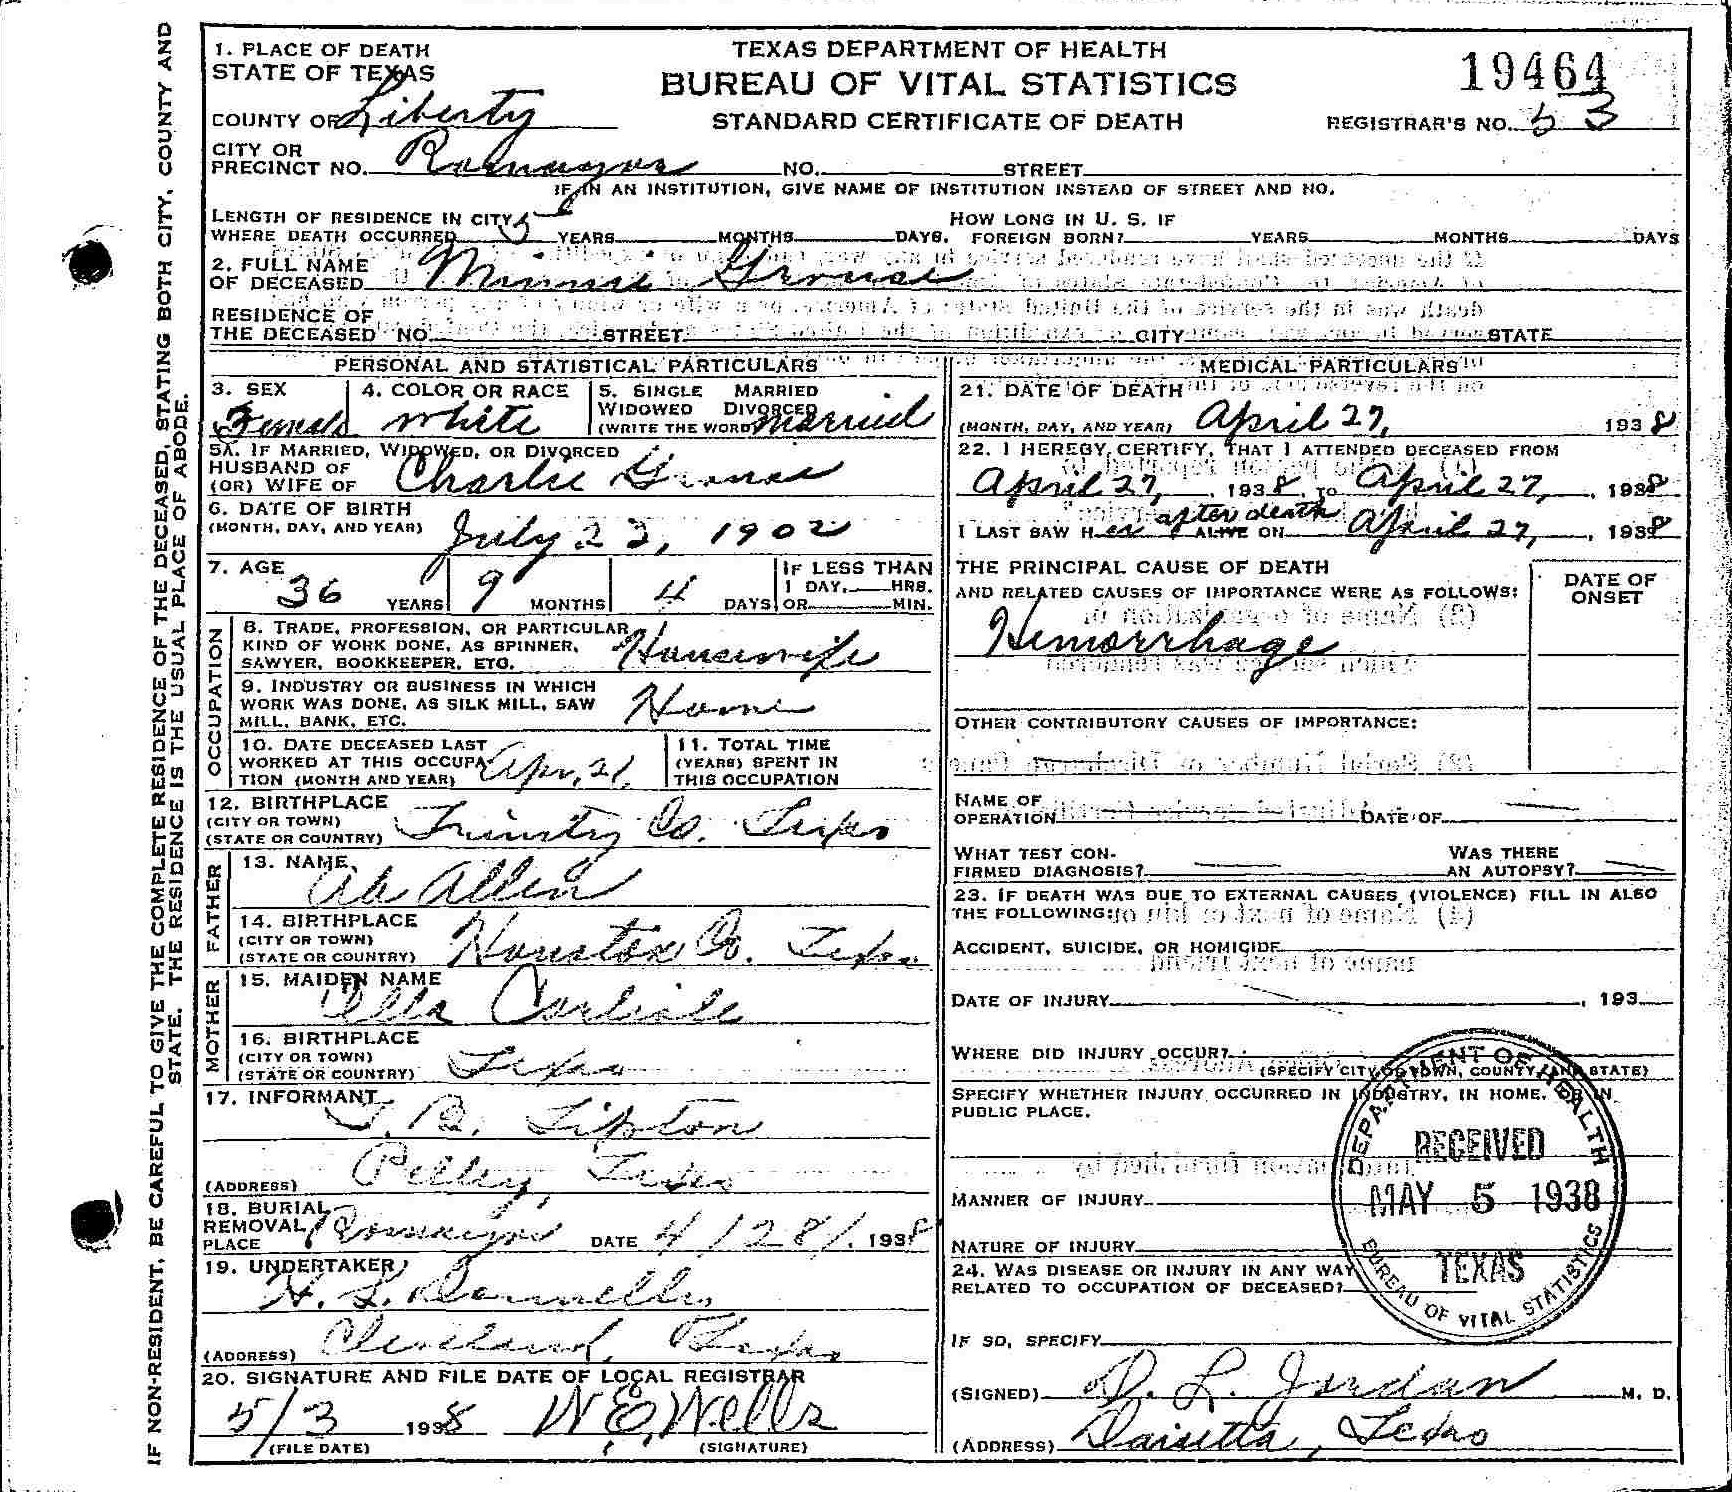 1. PLACE OF DEATH
STATE OF TEXAS
COUNTY OF Liberty
CITY OR
PRECINCT NO. Romayor NO. STREET
TEXAS DEPARTMENT OF HEALTH
BUREAU OF VITAL STATISTICS
STANDARD CERTIFICATE OF DEATH
19464
REGISTRAR'S NO. 53
IF IN AN INSTITUTION, GIVE NAME OF INSTITUTION INSTEAD OF STREET AND NO.
LENGTH OF RESIDENCE IN CITY
WHERE DEATH OCCURRED 5 YEARS MONTHS DAYS.
HOW LONG IN U. S. IF
FOREIGN BORN? YEARS MONTHS DAYS
2. FULL NAME
OF DECEASED Minnie Grouse
RESIDENCE OF
THE DECEASED NO. STREET CITY STATE
PERSONAL AND STATISTICAL PARTICULARS
3. SEX
Female
4. COLOR OR RACE
White
5. SINGLE MARRIED
WIDOWED DIVORCED
(WRITE THE WORD) married
5A. IF MARRIED, WIDOWED, OR DIVORCED
HUSBAND OF
(OR) WIFE OF Charlie Grouse
6. DATE OF BIRTH
(MONTH, DAY, AND YEAR) July 23, 1902
7. AGE
36 YEARS 9 MONTHS 4 DAYS
IF LESS THAN
1 DAY, HRS.
OR MIN.
OCCUPATION
8. TRADE, PROFESSION, OR PARTICULAR
KIND OF WORK DONE, AS SPINNER,
SAWYER, BOOKKEEPER, ETC. Housewife
9. INDUSTRY OR BUSINESS IN WHICH
WORK WAS DONE, AS SILK MILL, SAW
MILL, BANK, ETC. Home
10. DATE DECEASED LAST
WORKED AT THIS OCCUPA-
TION (MONTH AND YEAR) Apr. 21
11. TOTAL TIME
(YEARS) SPENT IN
THIS OCCUPATION
12. BIRTHPLACE
(CITY OR TOWN)
(STATE OR COUNTRY) Trinity Co. Texas
FATHER
13. NAME
Ab Allen
14. BIRTHPLACE
(CITY OR TOWN)
(STATE OR COUNTRY) Houston Co. Texas
MOTHER
15. MAIDEN NAME
Ella Carlisle
16. BIRTHPLACE
(CITY OR TOWN)
(STATE OR COUNTRY) Texas
17. INFORMANT
T. B. Tipton
(ADDRESS) Pelley, Texas
18. BURIAL
REMOVAL
PLACE Romayor DATE 4/28/. 1938
19. UNDERTAKER
H. L.
(ADDRESS) Cleveland, Texas
20. SIGNATURE AND FILE DATE OF LOCAL REGISTRAR
5/3 1938 W. E. Wells
(FILE DATE) (SIGNATURE)
MEDICAL PARTICULARS
21. DATE OF DEATH
(MONTH, DAY, AND YEAR) April 27, 1938
22. I HEREBY CERTIFY, THAT I ATTENDED DECEASED FROM
April 27, 1938 TO April 27, 1938
after death
I LAST SAW Her ALIVE ON April 27, 1938
THE PRINCIPAL CAUSE OF DEATH
AND RELATED CAUSES OF IMPORTANCE WERE AS FOLLOWS:
DATE OF
ONSET
Hemorrhage
OTHER CONTRIBUTORY CAUSES OF IMPORTANCE:
NAME OF
OPERATION DATE OF
WHAT TEST CON-
FIRMED DIAGNOSIS?
WAS THERE
AN AUTOPSY?
23. IF DEATH WAS DUE TO EXTERNAL CAUSES (VIOLENCE) FILL IN ALSO
THE FOLLOWING:
ACCIDENT, SUICIDE, OR HOMICIDE
DATE OF INJURY , 193
WHERE DID INJURY OCCUR?
(SPECIFY CITY OR TOWN, COUNTY, AND STATE)
SPECIFY WHETHER INJURY OCCURRED IN INDUSTRY, IN HOME, OR IN
PUBLIC PLACE.
MANNER OF INJURY
NATURE OF INJURY
24. WAS DISEASE OR INJURY IN ANY WAY
RELATED TO OCCUPATION OF DECEASED?
IF SO, SPECIFY
(SIGNED) D. L. Jordan M. D.
(ADDRESS) Daisetta, Texas
DEPARTMENT OF HEALTH
RECEIVED
MAY 5 1938
TEXAS
BUREAU OF VITAL STATISTICS
IF NON-RESIDENT, BE CAREFUL TO GIVE THE COMPLETE RESIDENCE OF THE DECEASED, STATING BOTH CITY, COUNTY AND
STATE. THE RESIDENCE IS THE USUAL PLACE OF ABODE.